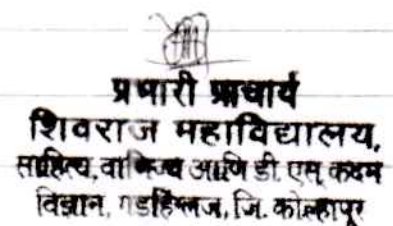 प्रभारी प्राचार्य
शिवराज महाविद्यालय,
साहित्य, वाणिज्य आणि डी. एस्. कदम
विज्ञान, गडहिंग्लज, जि. कोल्हापूर